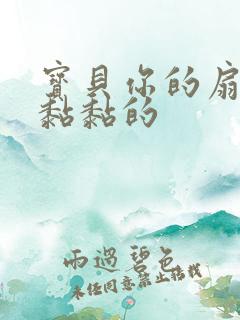 寶貝你的扇
黏黏的
雨過碧色
未任同意禁止估找